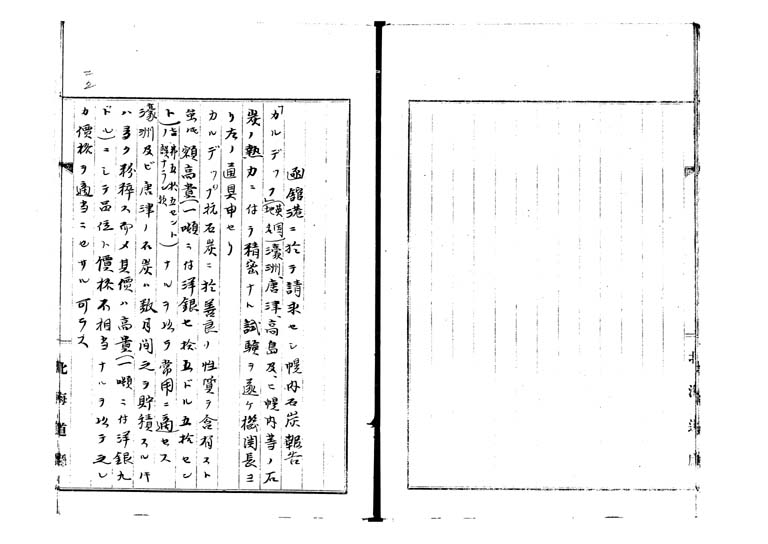 函館港ニ於テ請求セシ幌内石炭報告
「カルデフ(英国地名)濠洲、唐津、高島及ヒ幌内等ノ石
炭ノ熱力ニ付テ精密ナル試験ヲ遂ケ機関長ヨ
リ左ノ通具申セリ
カルデフ坑石炭ニ於善良ノ性質ヲ含有スト
雖ドモ額高貴(一噸ニ付洋銀七拾五ドル五拾セン
ト)ナルヲ以テ常用ニ適セス
濠洲及ビ唐津ノ石炭ハ数月間之ヲ貯積スル片
ハ多ク粉粹ス而メ其價ハ高貴(一噸ニ付洋銀九
ドル)ニシテ品位ト價格不相当ナルヲ以テ之レ
カ價格ヲ適当ニセサル可ラス
北海道廳
北海道廳